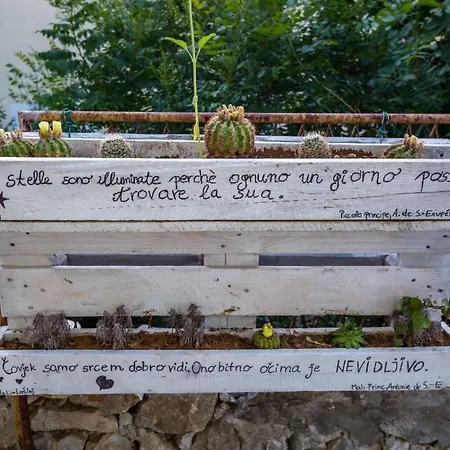 stelle sono illuminate perchè ognuno un giorno pos
trovare la sua.
Piccolo principe, A. de S.-Exupé
Čovjek samo srcem dobro vidi. Ono bitno očima je NEVIDLJIVO.
Mali Princ, Antoine de S.-E